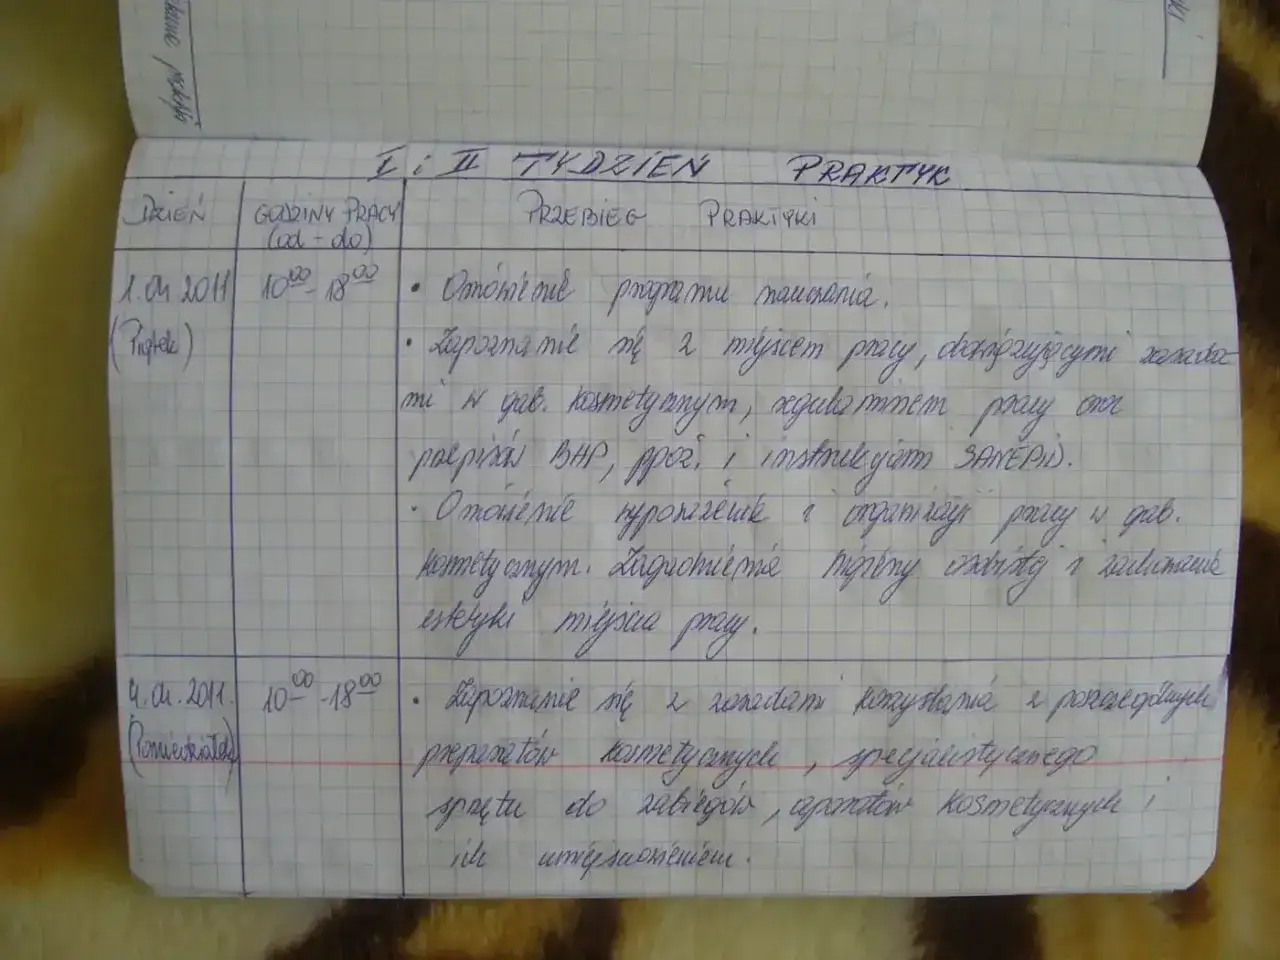 I i II TYDZIEŃ PRAKTYK
DZIEŃ
GODZINY PRACY
(od - do)
PRZEBIEG PRAKTYKI
1.04.2011
(Piątek)
10⁰⁰-18⁰⁰
• Omówienie programu nauczania.
• Zapoznanie się z miejscem pracy, obowiązującymi zasada-
mi w gab. kosmetycznym, regulaminem pracy oraz
przepisów BHP, ppoż. i instrukcjami SANEPiD.
• Omówienie wyposażenia i organizacji pracy w gab.
kosmetycznym. Zagadnienia higieny osobistej i zachowania
estetyki miejsca pracy.
4.04.2011.
(Poniedziałek)
10⁰⁰-18⁰⁰
• Zapoznanie się z zasadami korzystania z poszczególnych
preparatów kosmetycznych, specjalistycznego
sprzętu do zabiegów, aparatów kosmetycznych i
ich umiejscowieniem.